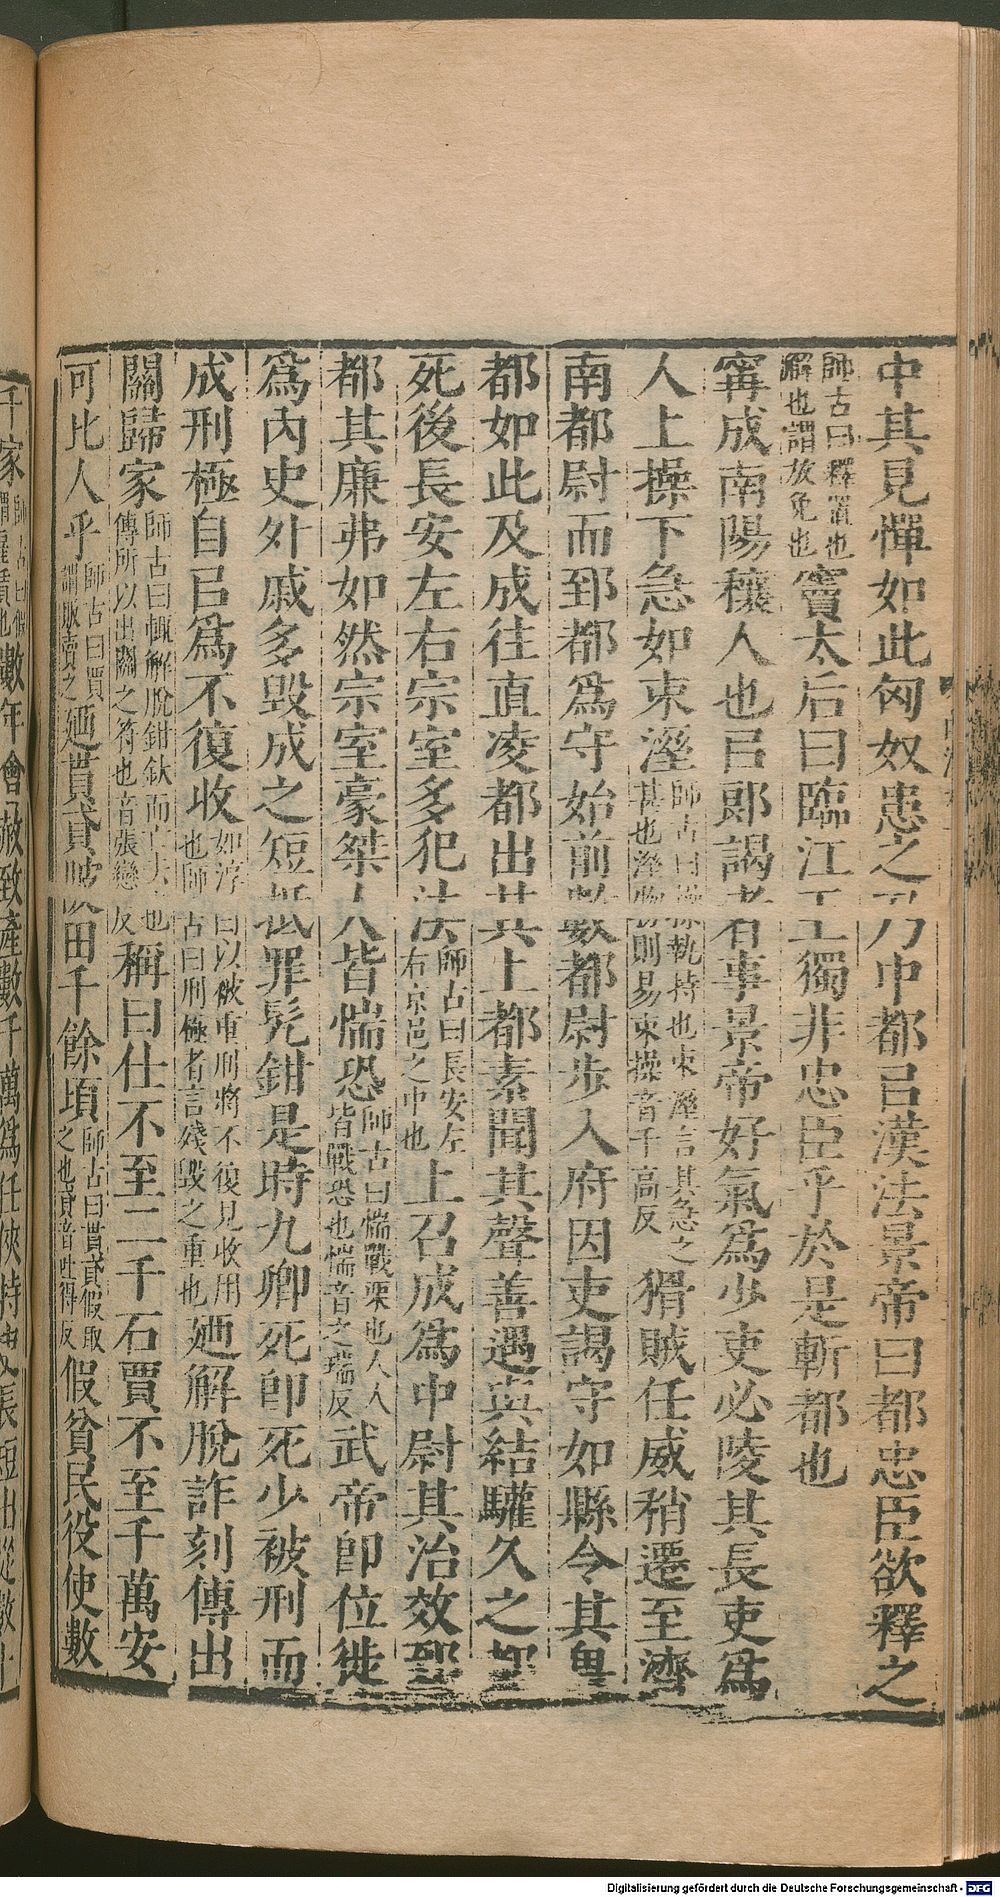 中其見憚如此匈奴患之乃中都㠯漢法景帝曰都忠臣欲釋之
師古曰釋置也解也謂放免也竇太后曰臨江王獨非忠臣乎於是斬都也
甯成南陽穰人也㠯郎謁者事景帝好氣爲少吏必陵其長吏爲
人上操下急如束溼師古曰操執持也束溼言其急之甚也溼物則易束操音千高反猾賊任威稍遷至濟
南都尉而郅都爲守始前數都尉步入府因吏謁守如縣令其畏
都如此及成往直凌都出其上都素聞其聲善遇與結驩久之都
死後長安左右宗室多犯法師古曰長安左右京邑之中也上召成爲中尉其治效郅
都其廉弗如然宗室豪桀人皆惴恐師古曰惴戰栗也人人皆戰恐也惴音之瑞反武帝卽位徙
爲內史外戚多毀成之短抵罪髡鉗是時九卿死卽死少被刑而
成刑極自㠯爲不復收如淳曰以被重刑將不復見收用也師古曰刑極者言殘毀之重也廼解脫詐刻傳出
關歸家師古曰輒解脫鉗釱而亡去也傳所以出關之符也音張戀反稱曰仕不至二千石賈不至千萬安
可比人乎師古曰賈謂販賣之廼貰貣陂田千餘頃師古曰貰貣假取之也貣音吐得反假貧民役使數
千家師古曰假謂雇賃也數年會赦致產數千萬爲任俠持吏長短出從數十
Digitalisierung gefördert durch die Deutsche Forschungsgemeinschaft - DFG